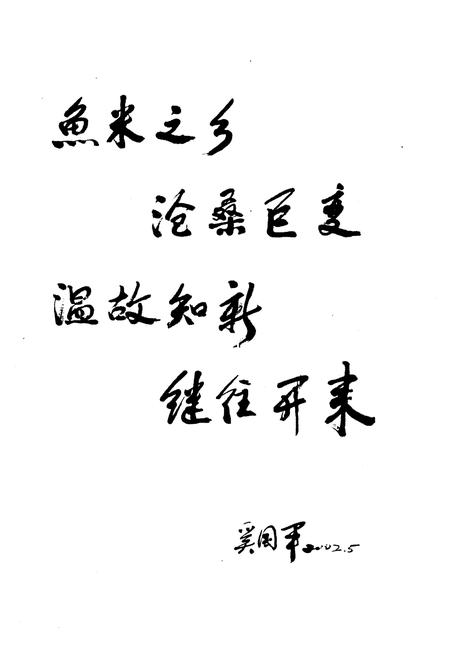 魚米之乡
沧桑巨变
温故知新
继往开来
奚国平 2002.5